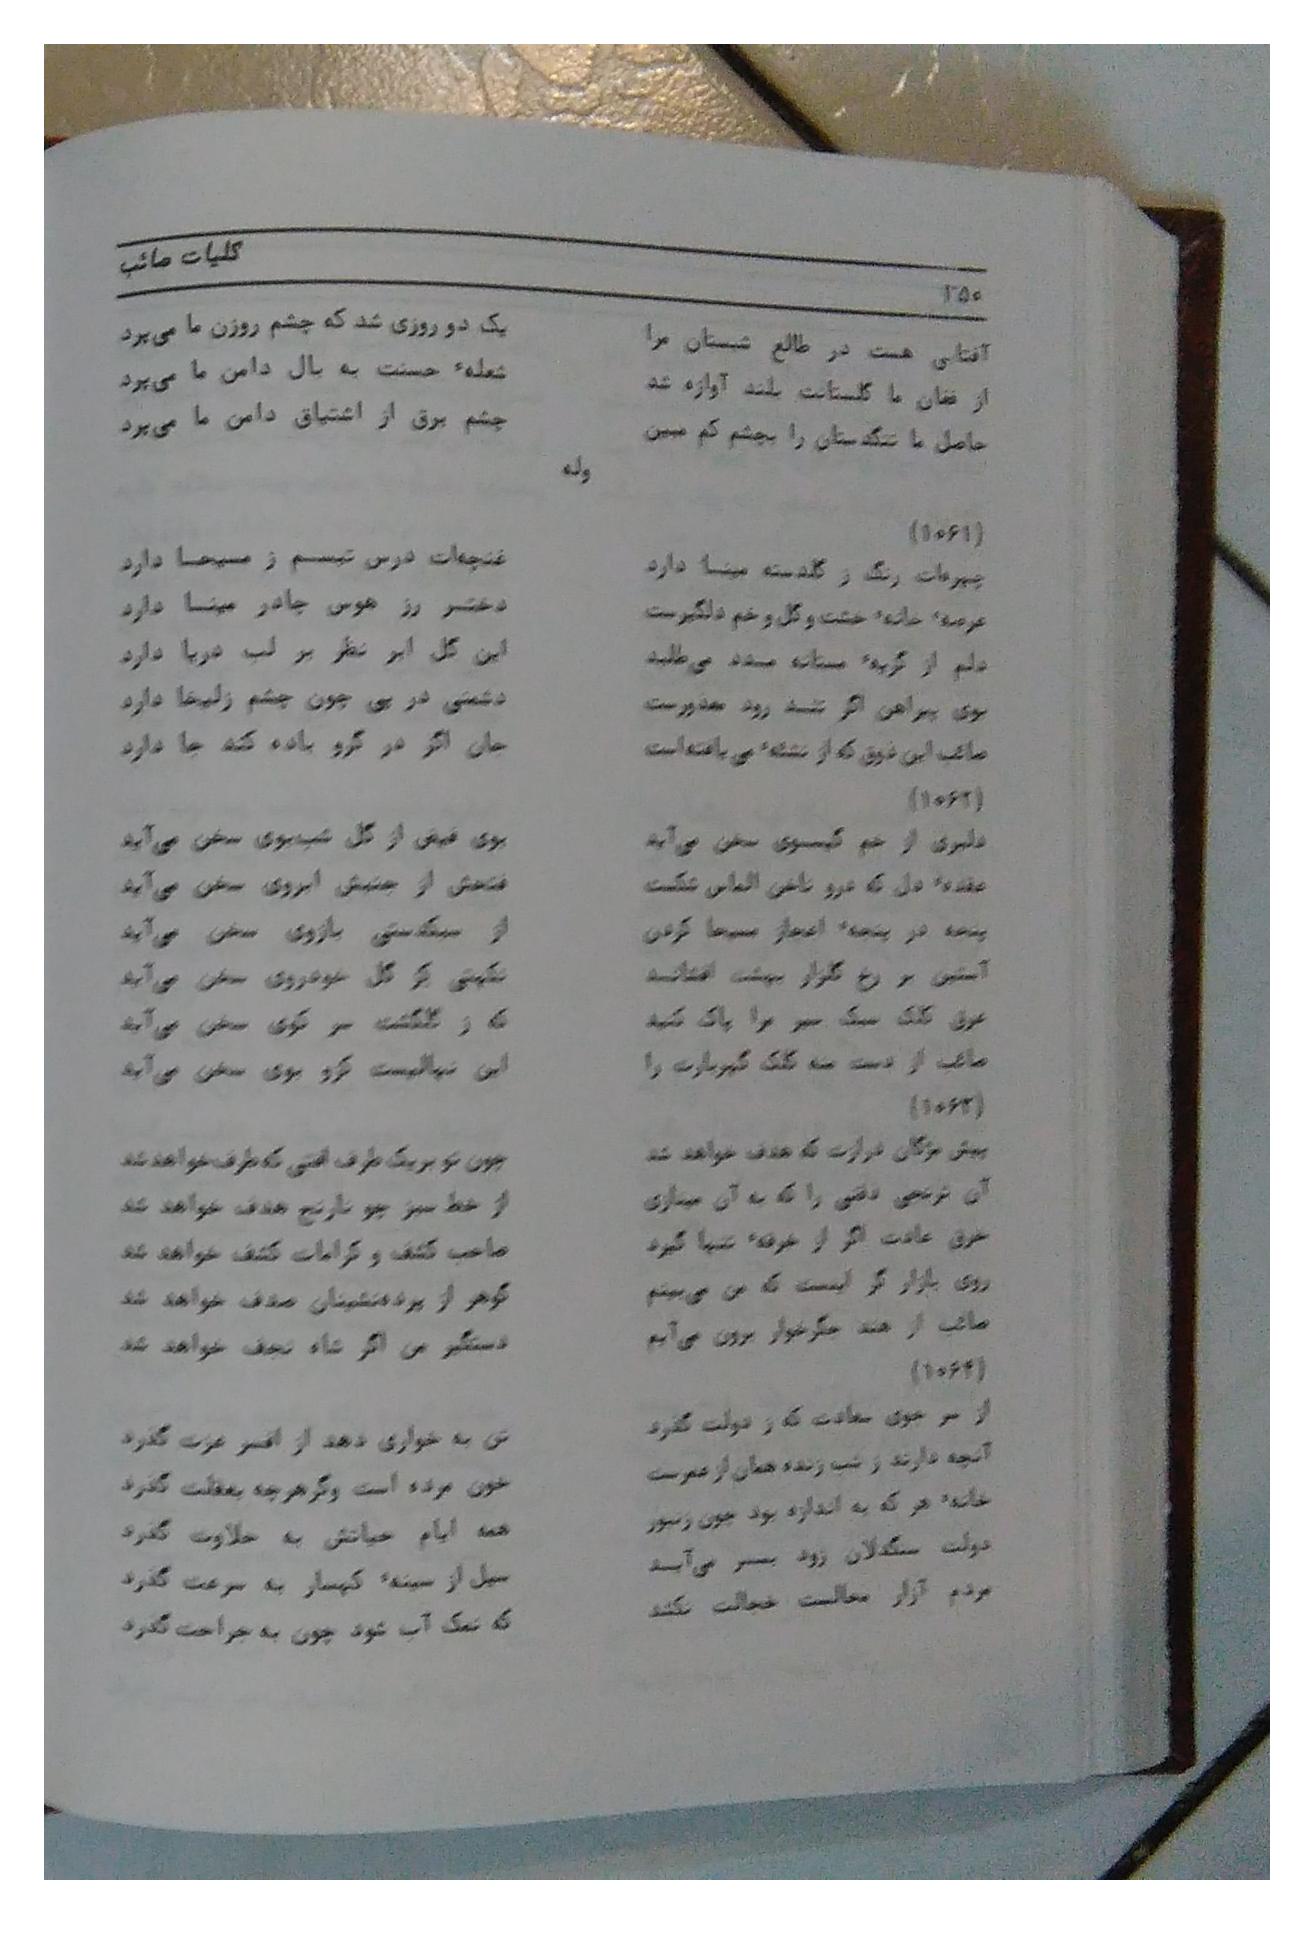 کلیات صائب
۳۵۰
آفتابی هست در طالع شبستان مرا
یک دو روزی شد که چشم روزن ما می‌پرد
از فغان ما گلستانت بلند آوازه شد
شعلهٔ حسنت به بال دامن ما می‌پرد
حاصل ما تنگدستان را بچشم کم مبین
چشم برق از اشتیاق دامن ما می‌پرد
وله
(۱۰۶۱)
چهره‌ات رنگ ز گلدسته مینا دارد
غنچه‌ات درس تبسم ز مسیحا دارد
عرصهٔ خانهٔ خشت و گل و خم دلگیرست
دختر رز هوس چادر مینا دارد
دلم از گریهٔ مستانه مدد می‌طلبد
این گل ابر نظر بر لب دریا دارد
بوی پیراهن اگر تند رود معذورست
دشمنی در پی چون چشم زلیخا دارد
صائب این ذوق که از نشئهٔ می یافته‌است
جان اگر در گرو باده کند جا دارد
(۱۰۶۲)
دلبری از خم گیسوی سخن می‌آید
بوی فیض از گل شب‌بوی سخن می‌آید
عقدهٔ دل که درو ناخن الماس شکست
فتحش از جنبش ابروی سخن می‌آید
پنجه در پنجهٔ اعجاز مسیحا کردن
از سبکدستی بازوی سخن می‌آید
آستین بر رخ گلزار بهشت افشاند
نکهتی کز گل خودروی سخن می‌آید
عرق کلک سبک سیر مرا پاک کنید
که ز گلگشت سر کوی سخن می‌آید
صائب از دست منه کلک گهربارت را
این نهالیست کزو بوی سخن می‌آید
(۱۰۶۳)
پیش مژگان درازت که هدف خواهد شد
چون تو بر یک طرف افتی که طرف خواهد شد
آن ترنجی ذقنی را که به آن مینازی
از خط سبز چو نارنج هدف خواهد شد
خرق عادت اگر از خرقهٔ تنها گیرد
صاحب کشف و کرامات کشف خواهد شد
روی بازار گر اینست که من می‌بینم
گوهر از پرده‌نشینان صدف خواهد شد
صائب از هند جگرخوار برون می‌آیم
دستگیر من اگر شاه نجف خواهد شد
(۱۰۶۴)
از سر جوی سعادت که ز دولت گذرد
تن به خواری دهد از افسر عزت گذرد
آنچه دارند ز شب زنده همان از عمرست
خون مرده است وگرهرچه بغفلت گذرد
خانهٔ هر که به اندازه بود چون زنبور
همه ایام حیاتش به حلاوت گذرد
دولت سنگدلان زود بسر می‌آید
سیل از سینهٔ کهسار به سرعت گذرد
مردم آزار محالست خجالت نکشد
که نمک آب شود چون به جراحت گذرد